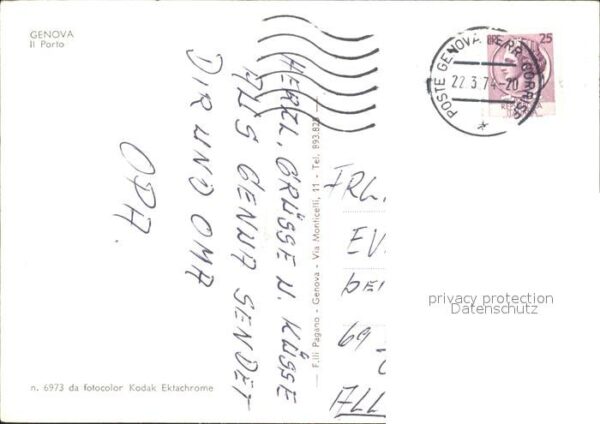 GENOVA
Il Porto
HERZL. GRÜSSE N. KÜSSE
AUS GENUA SENDET
DIR UND OMA
OPA.
F.lli Pagano - Genova - Via Monticelli, 11 - Tel. 893.828
n. 6973 da fotocolor Kodak Ektachrome
POSTE GENOVA FERR. CORRISP.
22.3.74-20
25
FRL.
EV
BEI
69
ALL
privacy protection
Datenschutz